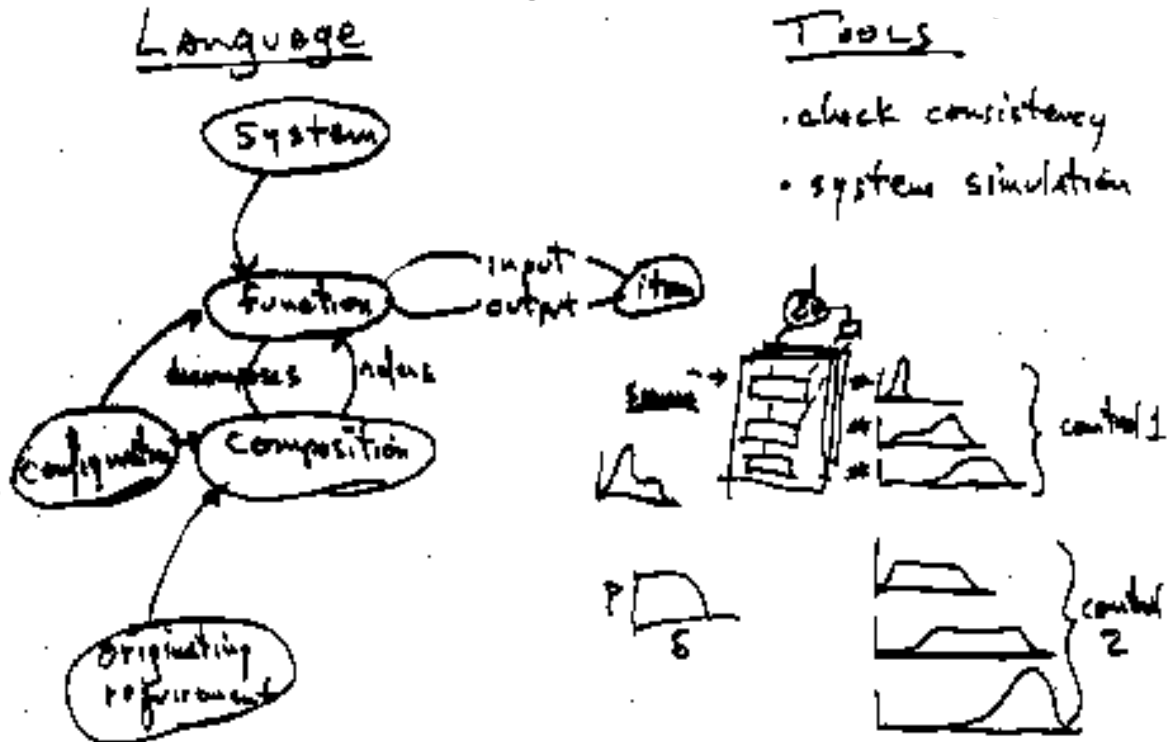 Language
System
function
input
output
item
decomposes
Configuration
Composition
Originating
requirement
Tools
• check consistency
• system simulation
control 1
P
δ
control
2